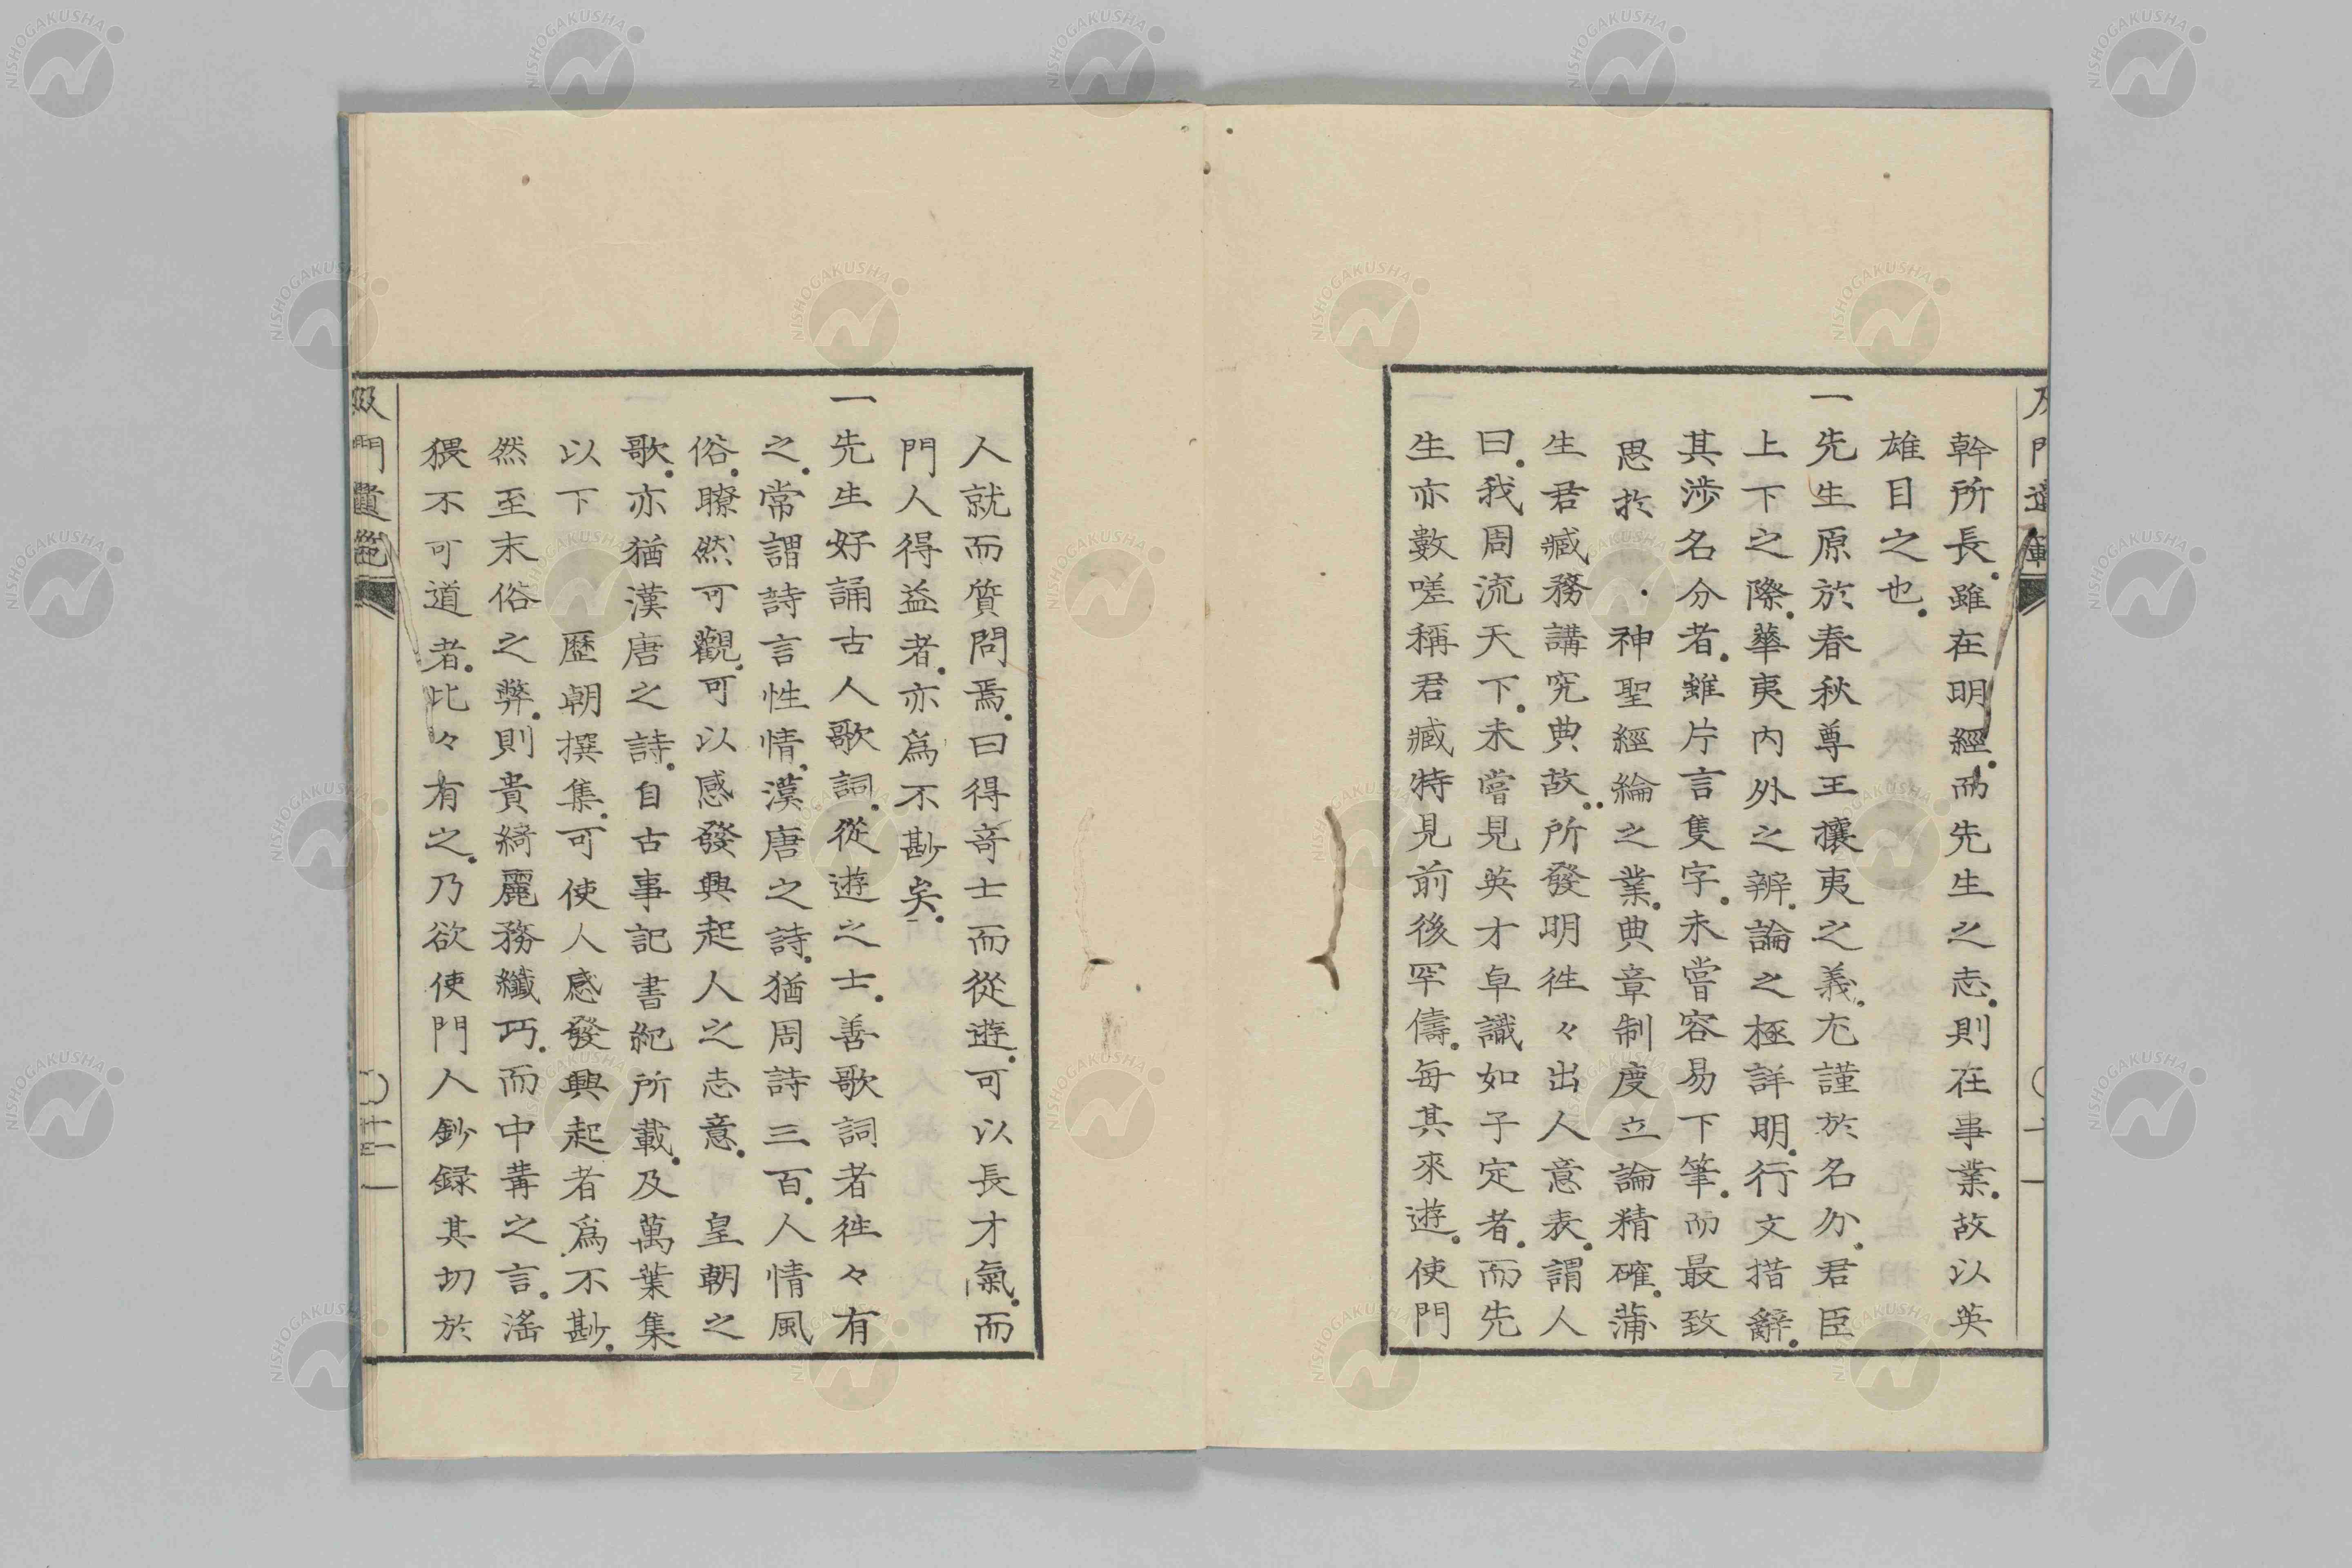 幹所長。雖在明經。而先生之志。則在事業。故以英
雄目之也。
一先生原於春秋尊王攘夷之義。尤謹於名分。君臣
上下之際。華夷內外之辨。論之極詳明。行文措辭。
其涉名分者。雖片言隻字。未嘗容易下筆。而最致
思於。神聖經綸之業。典章制度立論精確。蒲
生君臧務講究典故。所發明徃々出人意表。謂人
曰。我周流天下。未嘗見英才卓識如子定者。而先
生亦數嗟稱君臧特見前後罕儔。每其來遊。使門
人就而質問焉。曰得奇士而從遊。可以長才氣。而
門人得益者。亦爲不尠矣。
一先生好誦古人歌詞。從遊之士。善歌詞者徃々有
之。常謂詩言性情。漢唐之詩。猶周詩三百。人情風
俗。瞭然可觀。可以感發興起人之志意。皇朝之
歌。亦猶漢唐之詩。自古事記書紀所載。及萬葉集
以下歷朝撰集。可使人感發興起者爲不尠。
然至末俗之弊。則貴綺麗務纖巧。而中冓之言。滛
猥不可道者。比々有之。乃欲使門人鈔録其切於
及門遺範
NISHOGAKUSHA